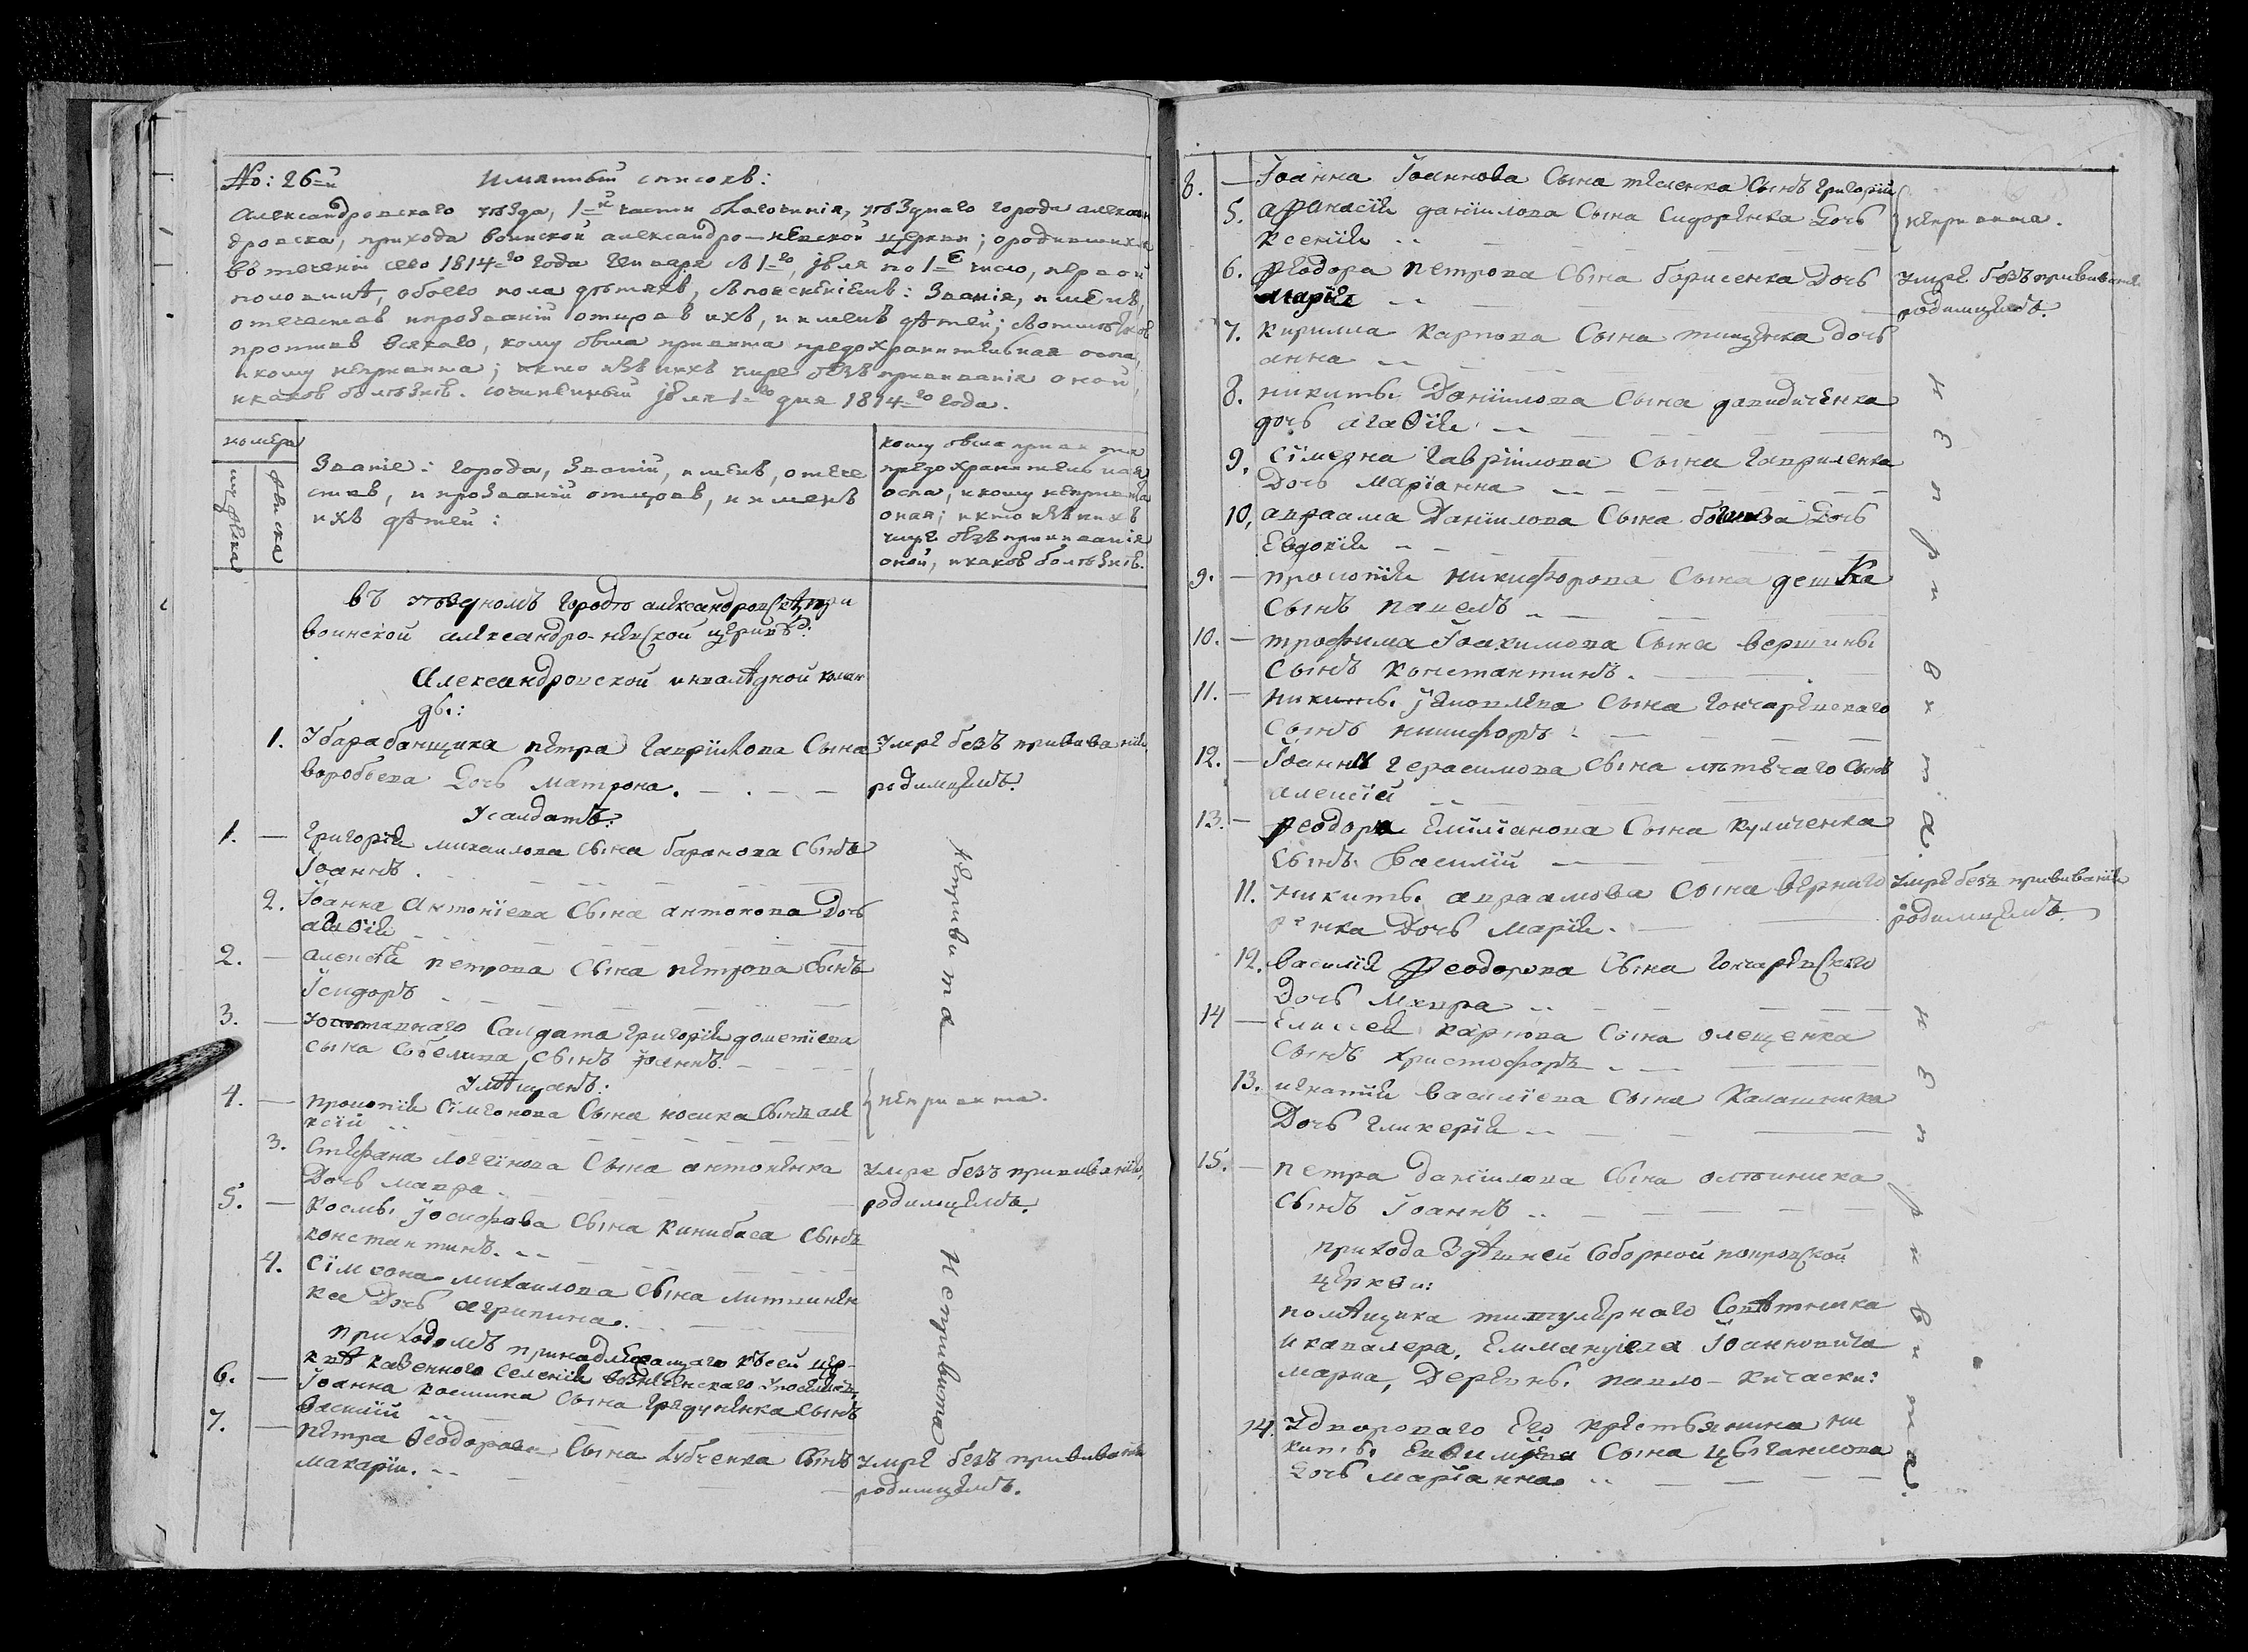 No: 26=й Имянный списокъ:
Александровскаго уѣзда, 1=й части благочинія, уѣзднаго города алексан
дровска, прихода воинской александро-невской церкви; ородившихся
въ теченіи сего 1814=го года генваря съ 1=го, іюля по 1=е число, первой
половинѣ, обоего пола дѣтяхъ, съ поясненіемъ: званія, именъ,
отечествъ и прозваній отцовъ ихъ, и именъ дѣтей; съ отмѣткою
противъ всякаго, кому была привита предохранительная оспа,
и кому непривита; и кто изъ нихъ умре безъ прививанія оной,
и какою болѣзнію. сочиненный іюля 1=го дня 1814=го года.
номера
мужеска
женска
Званіе: города, званій, именъ, отече
ствъ, и прозваній отцовъ, и именъ
ихъ дѣтей:
кому была привита
предохранительная
оспа, и кому непривита
оная; и кто изъ нихъ
умре безъ прививанія
оной, и какою болѣзнію.
въ уѣздномъ городѣ александровскѣ, при
воинской александро-невской церквѣ:
Александровской инвалѣдной коман
ды:
1. У барабанщика петра гавріилова сына Умре безъ прививанія
воробьева Дочь Матрона. родимцемъ.
У салдатъ:
1. — григорія михаилова сына баранова сынъ
Іоаннъ.
2. Іоанна Антоніева сына антонова Дочь
агаѳія
2. — алексѣя петрова сына петрова сынъ
Ісидоръ
непривита
3. — У отставнаго Салдата григорія дометіева
сына собелива сынъ Іоаннъ.
У мѣщанъ:
4. — прокопія Сімеонова Сына носика сынъ але
ксій непривита.
3. Стефана логгінова Сына антоненка Умре безъ прививанія,
Дочь мавра. родимцемъ.
5. — Космы Іосифова Сына кинибаса Сынъ
константинъ.
4. Сімеона михаилова сына литвинен
ка Дочь агрипина.
непривита
приходомъ принадлежащаго къ сей цер-
квѣ казеннаго селенія вознесенскаго У поселянъ
6. — Іоанна космина сына гредуненка сынъ
василій
7. — петра Ѳеодорова Сына дубченка Сынъ Умре безъ прививанія
макарій. родимцемъ.
8. — Іоанна Іоаннова Сына теленка Сынъ григорій
5. афанасія даніилова Сына Сидоренка Дочь непривита.
Ксенія
6. феодора петрова Сына борисенка Дочь Умре безъ прививанія
марія родимцемъ.
7. кирилла карпова Сына тищенка дочь
анна
8. никиты Даніилова Сына давидиченка
дочь агаѳія
9. Сімеона гавріилова Сына гавриленка
Дочь маріанна
10. авраама Даніилова Сына Дочь
Евдокія
9. — прокопія никифорова Сына дешка
Сынъ павелъ
10. — трофима Іоакимова Сына вершины
Сынъ константинъ.
11. — никиты Іаковлева Сына гончаревскаго
Сынъ никифоръ
12. — Іоанна герасимова Сына лѣтвчаго Сынъ
алексій
13. — феодора Еміліанова Сына куличенка
Сынъ Василій
непривита.
11. никиты авраамова Сына верниго Умре безъ прививанія
ренка Дочь Марія. родимцемъ.
12. василія феодорова Сына гончаревскаго
Дочь Мавра
14 — Елиссея карпова Сына олещенка
Сынъ христофоръ
13. игнатія василіева Сына калашника
Дочь гликерія
15. — петра даніилова Сына олѣйника
Сынъ Іоаннъ
прихода здѣшней Соборной покровской
церкви:
помѣщика титулярнаго Совѣтника
и кавалера, Еммануила Іоанновича
марка, Деревни павло-кичаски:
14. У двороваго Его крестьянина ни
киты Евѳиміева Сына цыганкова
Дочь маріанна
непривита.